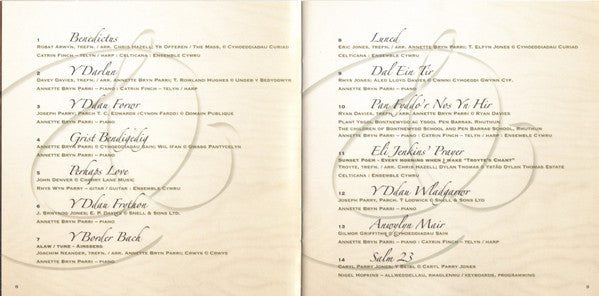 1 Benedictus
Robat Arwyn, trefn. / arr. Chris Hazell; Yr Offeren / The Mass, © Cyhoeddiadau Curiad
Catrin Finch – telyn / harp : Celticana : Ensemble Cymru
2 Y Darlun
Davey Davies, trefn. / arr. Annette Bryn Parri; T. Rowland Hughes ©
Annette Bryn Parri – piano : Catrin Finch – telyn / harp
3 Y Ddau Forwr
Joseph Parry, Parch T. C. Edwards (Cynon Fardd) © Domain Publique
Annette Bryn Parri – piano
4 Grist Bendigedig
Annette Bryn Parri © Cyhoeddiadau Sain; Wil Ifan © Gwasg Pantycelyn
Annette Bryn Parri – piano
5 Perhaps Love
John Denver © Cherry Lane Music
Rhys Wyn Parry – gitar / guitar : Ensemble Cymru
6 Y Ddau Frython
J. Jones; E. P. Davies © Snell & Sons Ltd.
Annette Bryn Parri – piano
7 Y Border Bach
Alaw / Tune - Arnsberg
Joachim Neander, trefn. / arr. Annette Bryn Parri; Crwys © Crwys
Annette Bryn Parri – piano
8
8 Luned
Eric Jones, trefn. / arr. Annette Bryn Parri; T. Elfyn Jones © Cyhoeddiadau Curiad
Celticana : Ensemble Cymru
9 Dal Ein Tir
Rhys Jones; Aled Lloyd Davies © Cwmni Cyhoeddi Gwynn Cyf.
Annette Bryn Parri – piano : Ensemble Cymru
10 Pan Fyddo'r Nos Yn Hir
Ryan Davies, trefn. / arr. Annette Bryn Parri © Ryan Davies
Plant Ysgol Bontnewydd ac Ysgol Pen Barras, Rhuthun
The children of Bontnewydd School and Pen Barras School, Rhuthun
Annette Bryn Parri – piano : Catrin Finch – telyn / harp : Ensemble Cymru
11 Eli Jenkins' Prayer
Sunset Poem - Every morning when I wake "Troyte's Chant"
Troyte, trefn. / arr. Chris Hazell; Dylan Thomas © Dylan Thomas Estate
Celticana : Ensemble Cymru
12 Y Ddau Wladgarwr
Joseph Parry, Parch. T Lodwick © Snell & Sons Ltd
Annette Bryn Parri – piano
13 Anwylyn Mair
Gilmor Griffiths © Cyhoeddiadau Sain
Annette Bryn Parri – piano : Catrin Finch – telyn / harp
14 Salm 23
Caryl Parry Jones; Y Beibl © Caryl Parry Jones
Nigel Hopkins – allweddellau, rhaglennu / keyboards, programming
9